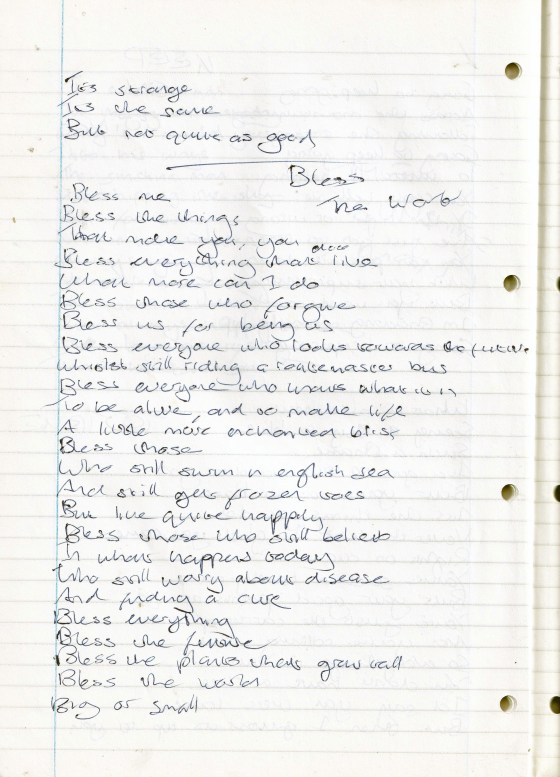 It's strange
It's the same
But not quite as good
Bless
The World
Bless me
Bless the things
That make you, you
Bless everything that live
What more can I do
Bless those who forgive
Bless us for being us
Bless everyone who looks towards the future
Whilst still riding a routemaster bus
Bless everyone who knows what it is
To be alive, and to make life
A little more enchanted bliss
Bless those
Who still swim in english sea
And still gets frozen toes
But live quite happily
Bless those who still believe
In whats happens today
Who still worry about disease
And finding a cure
Bless everything
Bless the future
Bless the plants thats grow tall
Bless the world
Big or small